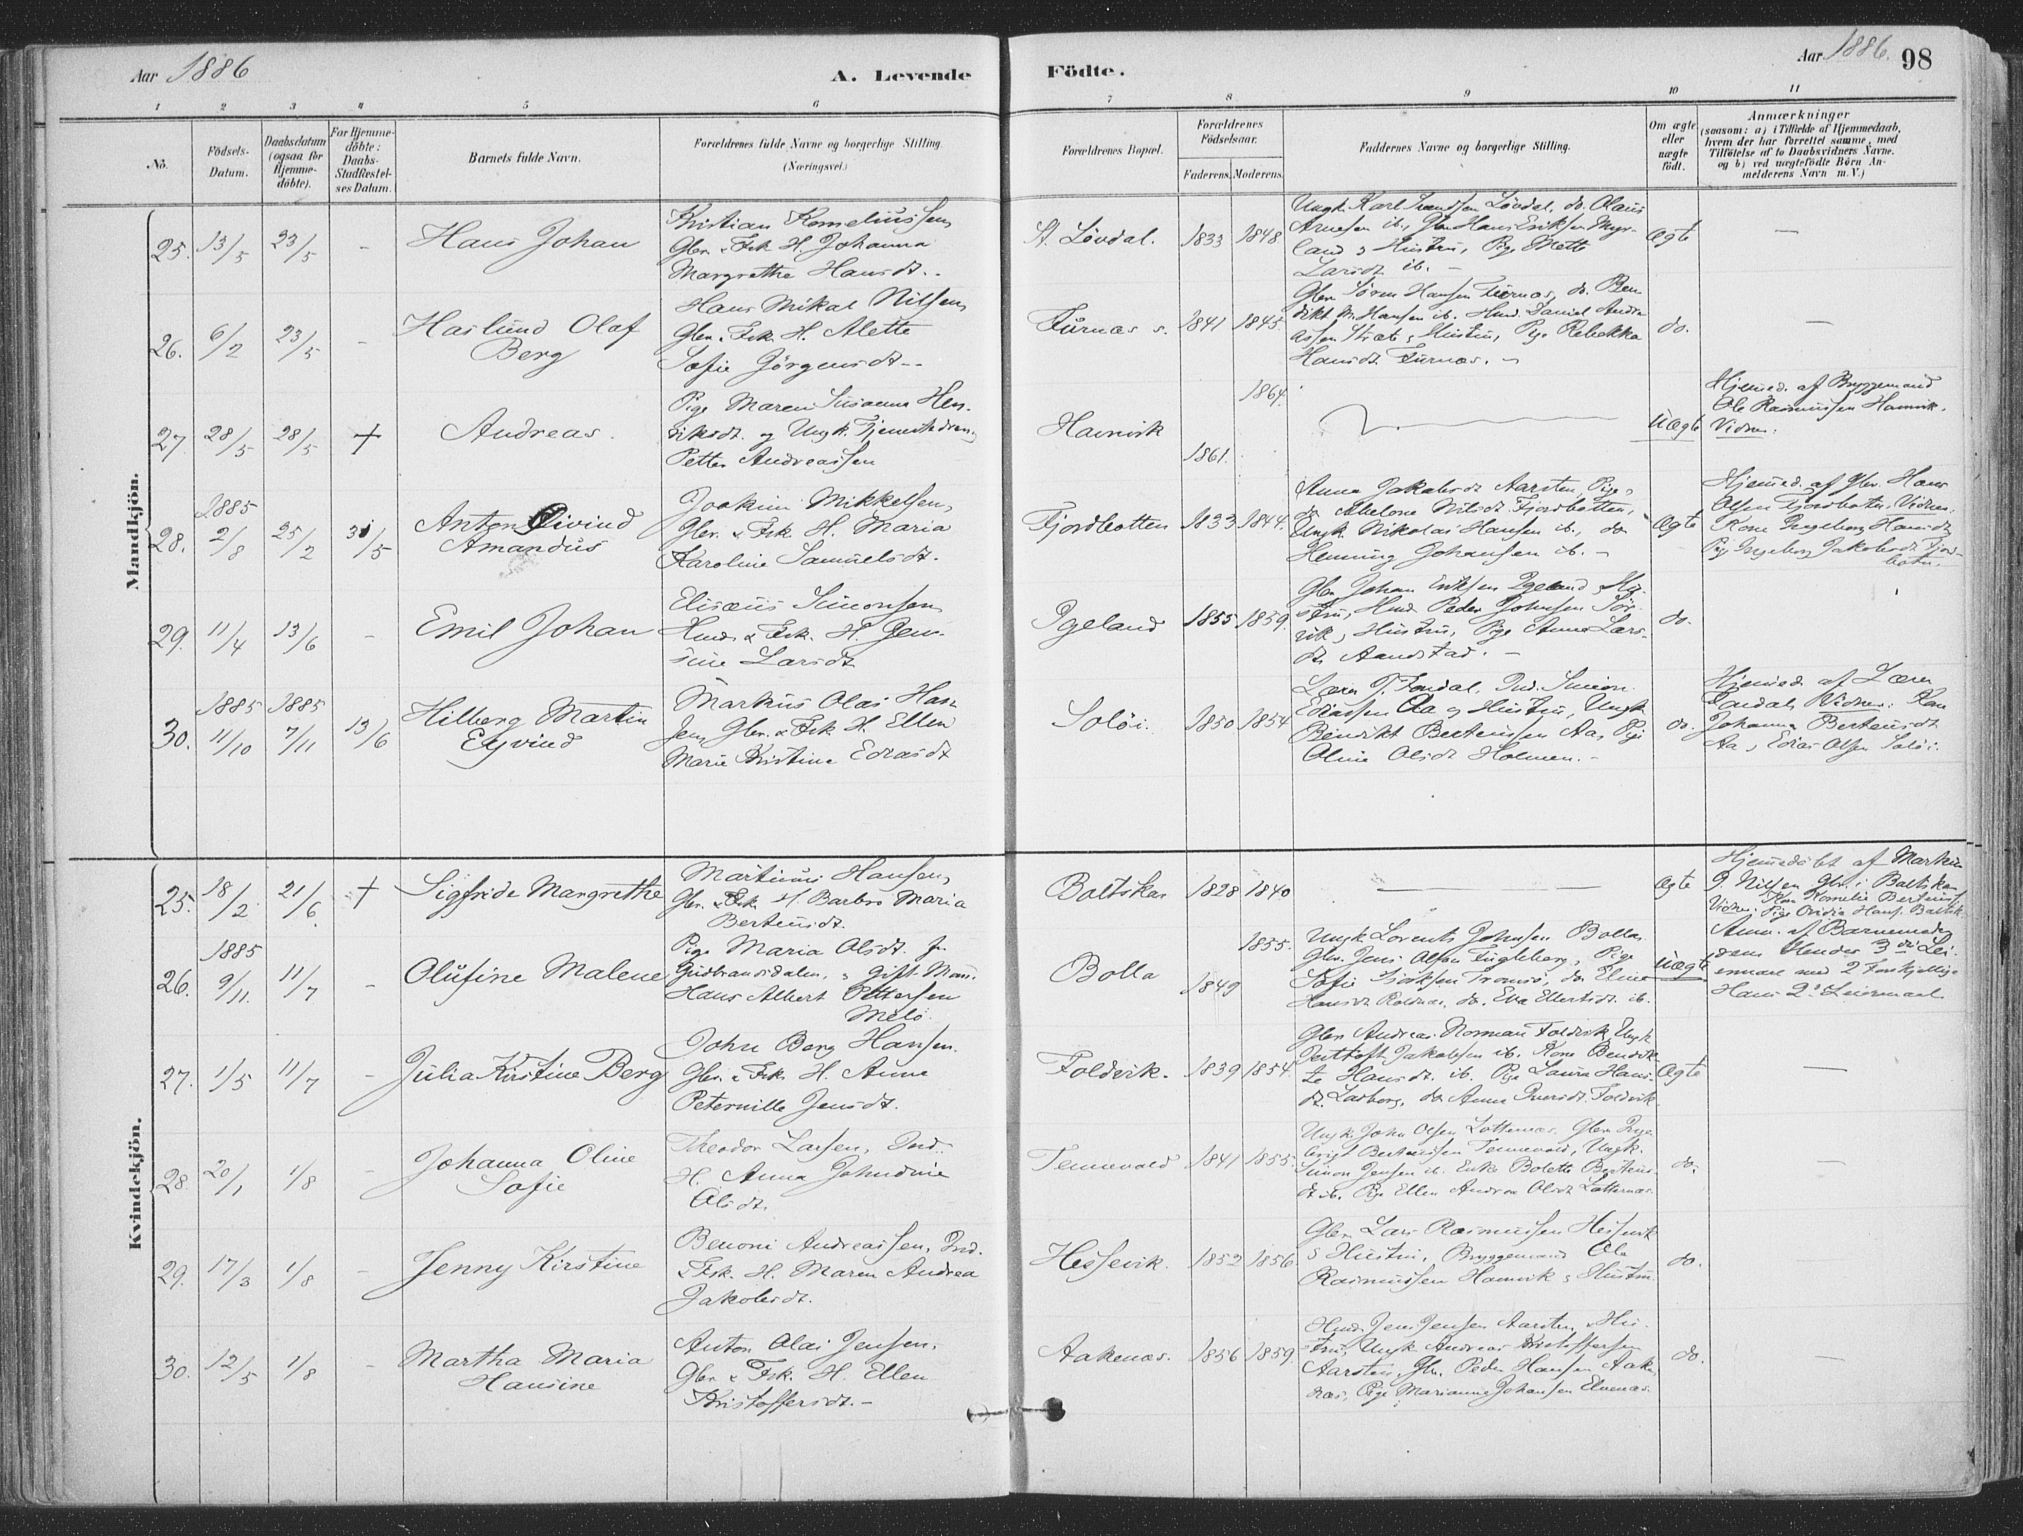 Aar 1886
A. Levende Födte.
Aar 1886. 98
1 2 3 4 5 6 7 8 9 10 11
No.
Födsels-
Datum.
Daabsdatum
(ogsaa for
Hjemme-
döbte).
For Hjemme-
döbte:
Daabs-
Stadfæstel-
ses Datum.
Barnets fulde Navn.
Forældrenes fulde Navne og borgerlige Stilling
(Næringsvei.)
Forældrenes Bopæl.
Forældrenes
Födselsaar.
Faderens. Moderens.
Faddernes Navne og borgerlige Stilling.
Om ægte
eller
uægte
födt.
Anmærkninger
(saasom: a) i Tilfælde af Hjemmedaab,
hvem der har forrettet samme, med
Tilföielse af to Daabsvidners Navne.
og b) ved uægtefödte Börn An-
melderens Navn m. V.)
Mandkjön.
25. 13/5 23/5 -
Hans Johan
Kristian Korneliussen,
Gbr. & Fsk. H. Johanna
Margrethe Hansdt.
St. Lövdal. 1833 1848
Ungk. Karl Lövdal, do. Olaus
Arnesen ib., Gbr. Hans Eriksen Myr-
land & Hustru, Pige Mette
Larsdt. ib. -
Ægte -
26. 6/2 23/5 -
Haslund Olaf
Berg
Hans Mikal Nilsen,
Gbr. & Fsk. H. Alette
Sofie Jörgensdt.
Furnæs 1841 1845
Gbr. Sören Hansen Furnæs, do. Ben-
dikt Hansen ib. Daniel Andre-
assen & Hustru, Pige Rebekka
Hansdt. Furnæs. -
do. -
27. 28/5 28/5 +
Andreas.
Pige Maren Susanna Hen-
riksdt. og Ungk.
Petter Andreassen
Havnvik 1861. 1864.
Uægte
Hjemmed. af Bryggemand
Ole Rasmussen Havnvik.
Vidner.
28. 1885 2/8 25/2 30/5
Anton Eivind
Amandus
Joakim Mikkelsen,
Gbr. & Fsk. H. Maria
Karoline Samuelsdt.
Fjordbotten 1833 1844.
Anna Jakobsdt. Aarsten, Pige,
do. Abelone Nilsdt. Fjordbotten,
Ungk. Nikolai Hansen ib., do.
Henning Johansen ib. -
Ægte
Hjemmed. af Gbr. Hans
Olsen Fjordboten. Vidner.
Kone Ingeborg Hansdt.
Pig. Ingeborg Jakobsdt. Fjord-
boten.
29. 11/4 13/6 -
Emil Johan
Elisæus Simonsen,
Husm. & Fsk. H. Jen-
sine Larsdt.
Ygeland 1855 1859.
Gbr. Johan Eriksen Ygeland, Hu-
stru, Husm. Peder Johnsen Sör-
vik, Hustru, Pige Anna Lars-
dt. Aandstad. -
do.
30. 1885 11/10 1885 7/11 13/6
Hilberg Martin
Eyvind
Markus Olai Han-
sen, Gbr. & Fsk. H. Ellen
Marie Kristine Edrasdt.
Solöi. 1850 1854
Lærer J. Fondal, Ind. Simon
Edrassen Aa og Hustru, Ungk.
Bendikt Berteussen Aa, Pige
Oline Olsdt. Holmen. -
do.
Hjemmed. af Lærer
Fondal. Vidner: Kone
Johanna Berteusdt.
Aa, Edras Olsen Solöi.
Kvindekjön.
25. 18/2 21/6 +
Sigfride Margrethe
Martinus Hansen,
Gbr. & Fsk. H. Barbro Maria
Berteusdt.
Boltskar 1828 1840
Ægte
Hjemmedöbt af Martin
P. Nilsen Gbr. i Boltskar
Vidner: Kone Kornelia
Pige Ovidia Hans.
26. 1885 9/11. 11/7 -
Olufine Malene
Pige Maria Olsdt. fr.
Gudbrandsdalen, & gift Mand
Hans Albert Pettersen
Melö.
Bolla 1849 1855.
Ungk. Lorents Johnsen Bolla
Gbr. Jens Olsen Fugleberg, Pige
Sofie Tromsö, do. Eline
Hansdt. Roldnæs, do. Eva Ellertsdt. ib.
Uægte
Anm. af Barnemod-
dem. Hendes 3die Lei-
ermaal med 2 forskjellige.
Hans 2det Leiermaal.
27. 1/5 11/7 -
Julia Kirstine Berg
John Berg Hansen.
Gbr. & Fsk. H. Anne
Peternille Jensdt.
Foldvik. 1839 1854.
Gbr. Andreas Norman Foldvik, Ungk.
Jentoft Jakobsen ib. Kone Bendik-
te Hansdt. ib. Pige Laura Hans-
dt. Laxborg, do. Anna Iversdt. Foldvik.
Ægte -
28. 20/1 1/8 -
Johanna Oline
Sofie
Theodor Larsen, Ind.
H. Anna Johndine
Olsdt.
Tennevold 1841 1855.
Ungk. John Olsen Lotternæs. Gbr. Inge-
brigt Berteussen Tennevold, Ungk.
Simon Jensen ib. Enke Bolette Berteus-
dt. ib. Pige Ellen Andrea Olsdt. Lotternæs.
do. -
29. 17/3 1/8 -
Jenny Kirstine
Benoni Andreassen, Ind.
& Fsk. H. Maren Andrea
Jakobsdt.
Hessevik. 1852 1856
Gbr. Lars Rasmussen Hessevik
& Hustru, Bryggemand Ole
Rasmussen Havnvik & Hustru.
do. -
30. 12/5 1/8 -
Martha Maria
Hansine
Anton Olai Jensen,
Gbr. & Fsk. H. Ellen
Kristoffersdt. -
Aakenæs. 1856 1859.
Husm. Jens Jensen Aarsten, & Hu-
stru, Ungk. Andreas Kristoffersen
Aarsten, Gbr. Peder Hansen Aake-
næs, Pige Marianne Johansen Elvenæs.
do. -